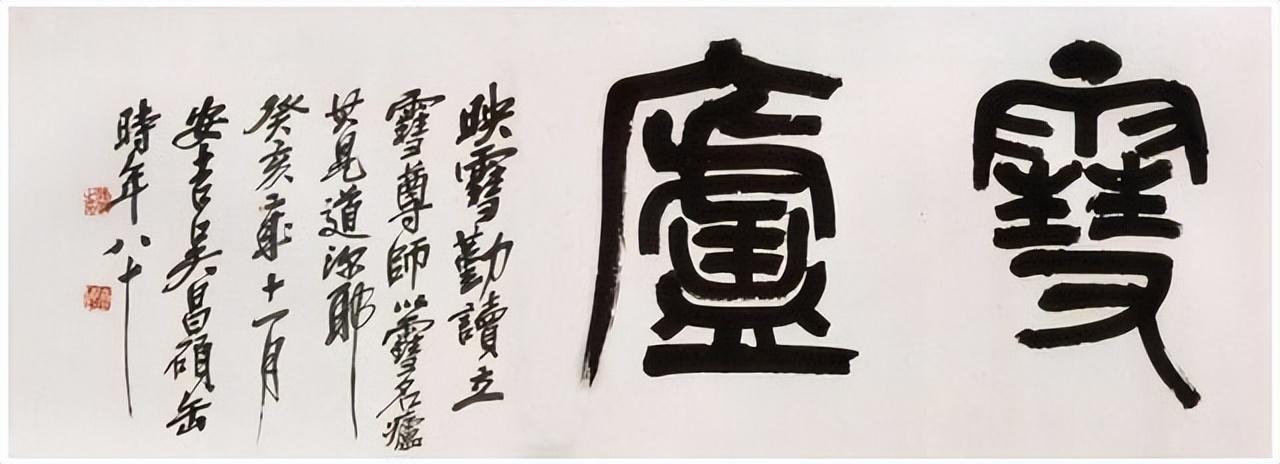 雪廬
映雪勤讀立
雪尊師以雪名廬
其見道深耶
癸亥歲十一月
安吉吴昌碩缶
時年八十